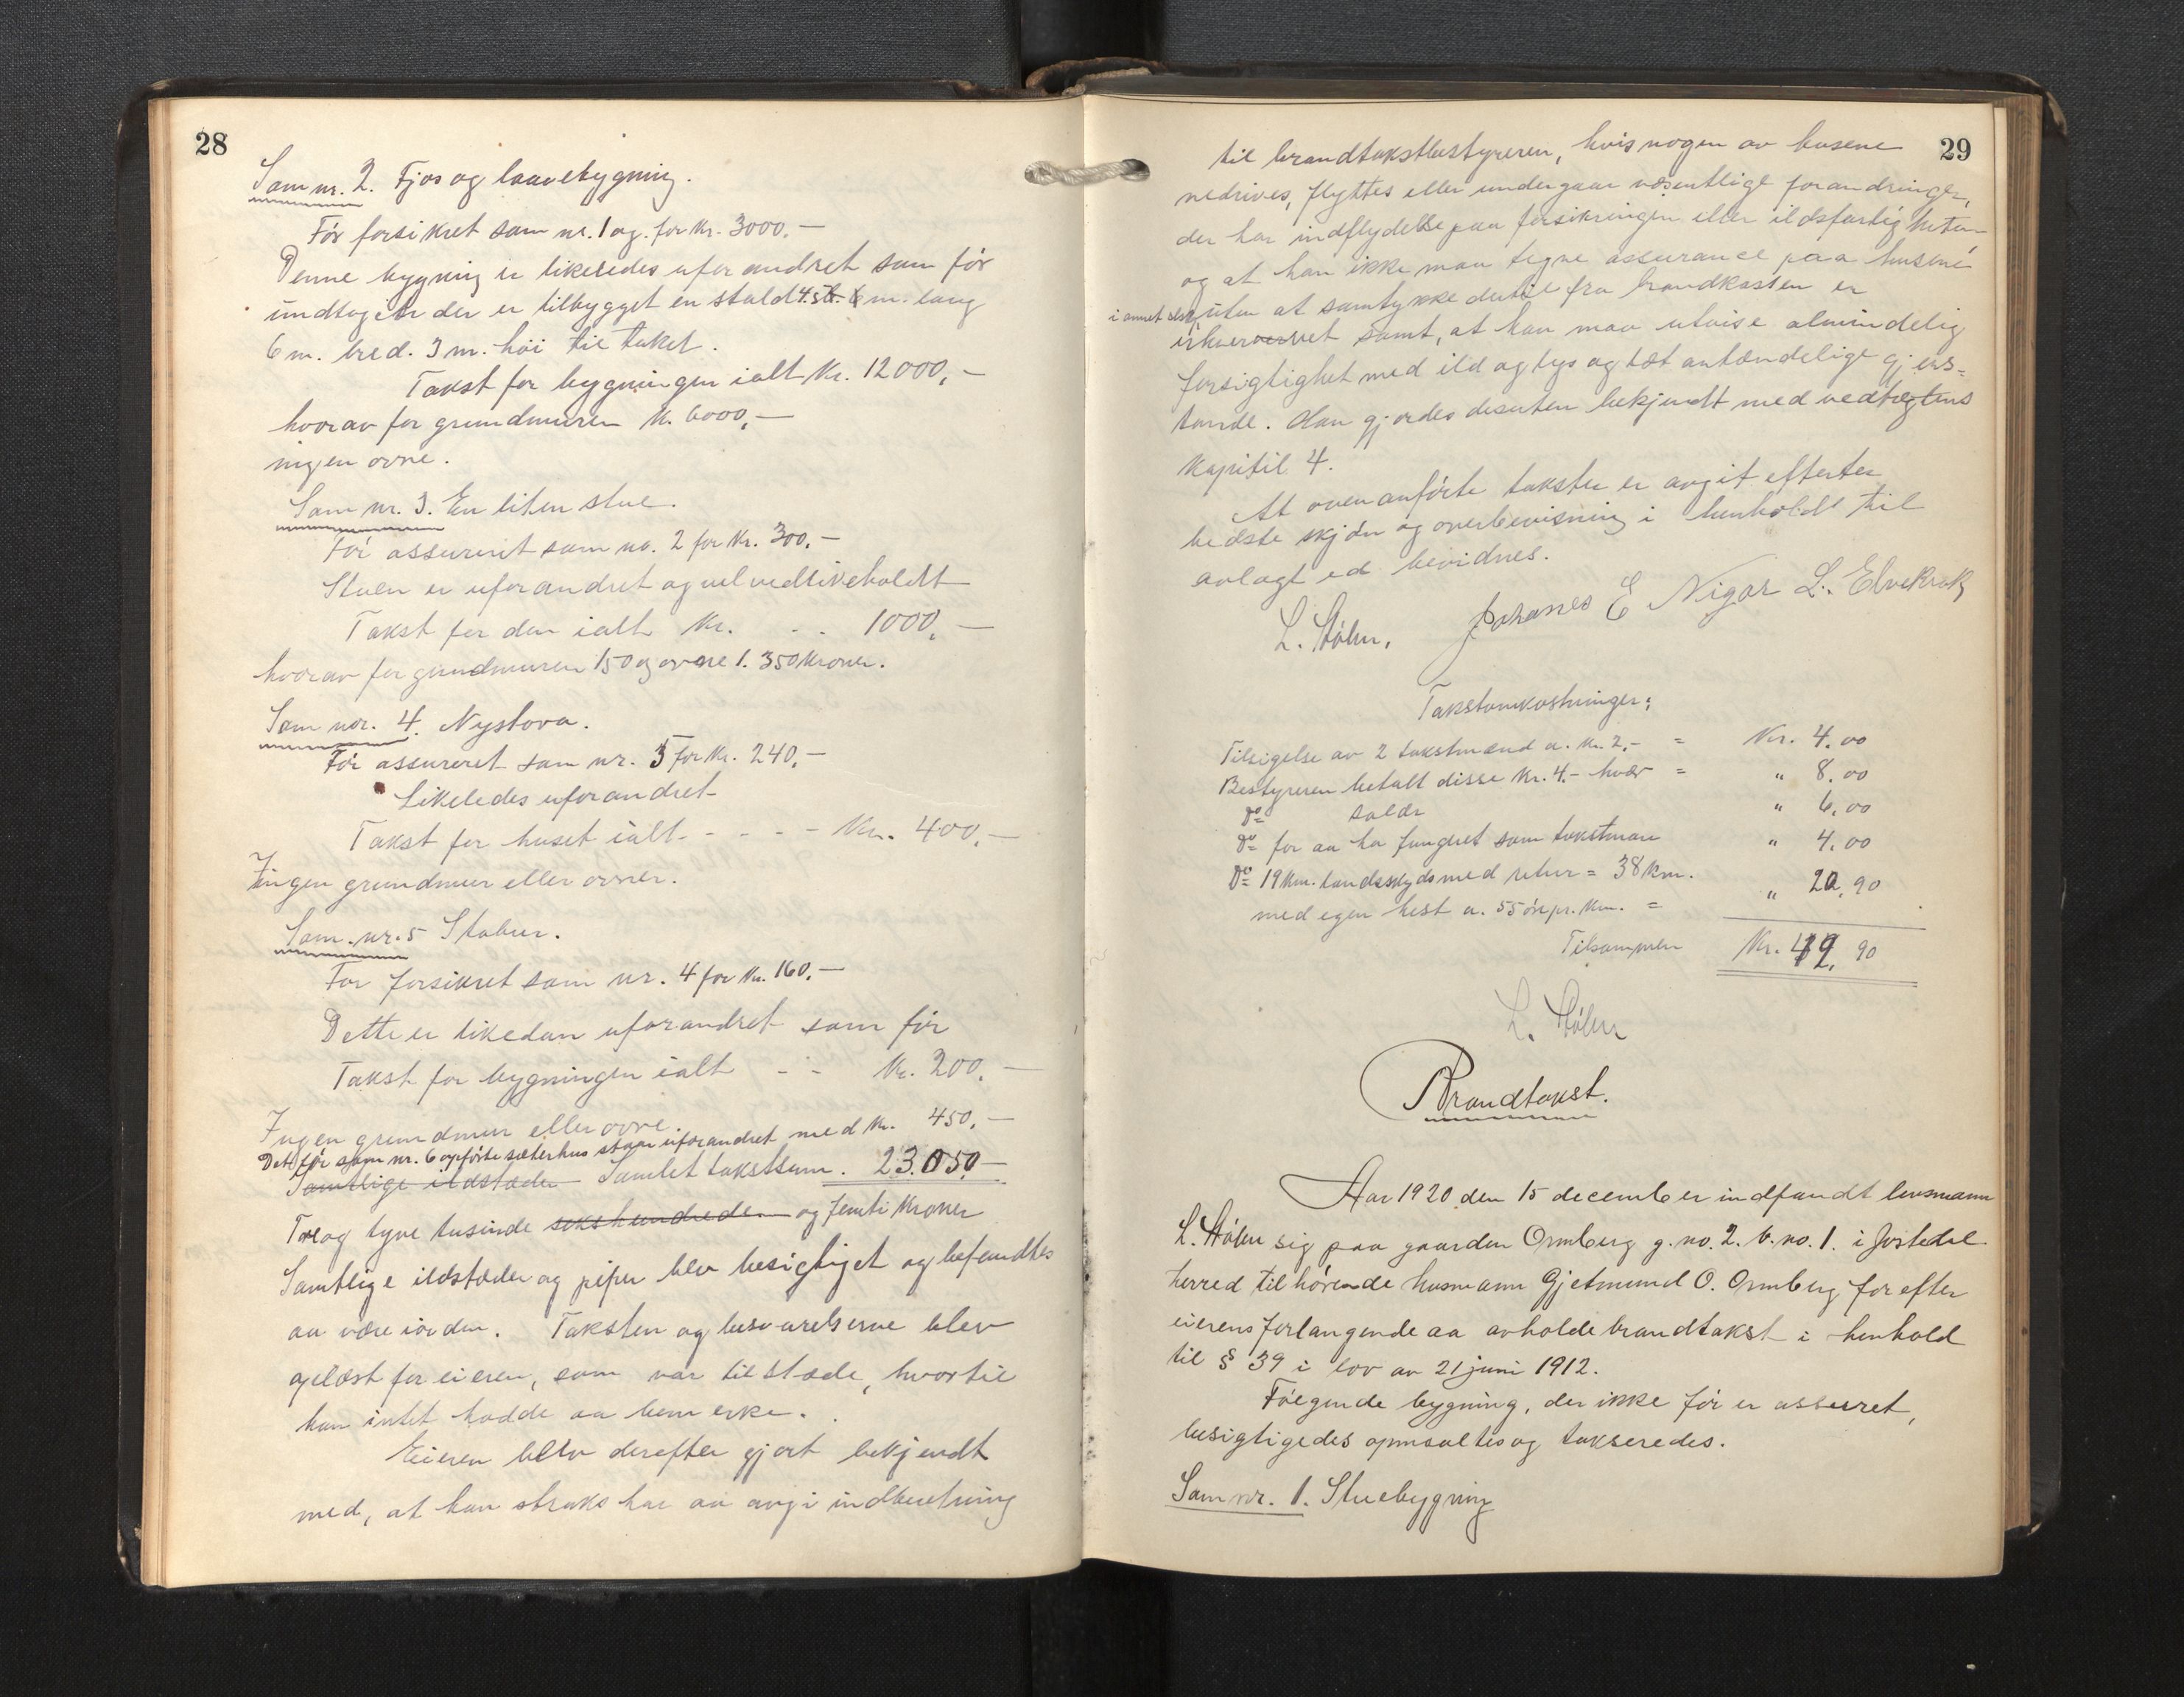 28
Som nr. 2. Fjos og laavebygning.
Før forsikret som nr. 1 og. for Kr. 3000.-
Denne bygning er likeledes uforandret som før
undtagen der er tilbygget en stald 4.5 m. lang
6 m. bred. 3 m. høi til taket.
Takst for bygningen ialt Kr. 12000,-
hvorav for grundmuren Kr. 6000,-
ingen ovne.
Som nr. 3. En liten stue.
Før assureret som no. 2 for Kr. 300.-
Stuen er uforandret og vel vedlikeholdt
Takst for den ialt Kr. - - 1000,-
hvorav for grundmuren 150 og ovne 1. 350 Kroner.
Som nr. 4. Nystova.
Før assureret som nr. 3 for Kr. 240,-
Likeledes uforandret
Takst for huset ialt - - - - Kr. 400,-
Ingen grundmur eller ovner.
Som. nr. 5 Stabur.
Før forsikret som nr. 4 for Kr. 160,-
Dette er likedan uforandret som før
Takst for bygningen ialt - - Kr. 200,-
Ingen grundmur eller ovne.
Det før som nr. 6 opførte sæterhus staar uforandret med Kr. 450,-
Samtlige ildstæder Samlet takstsum. 23.050-
Tre og tyve tusinde sekshundrede og femti Kroner
Samtlige ildstæder og piper blev besigtiget og befundtes
aa være iorden. Taksten og besvarelserne blev
oplæst for eieren, som var tilstæde, hvortil
han intet hadde aa bemerke.
Eieren blev derefter gjort bekjendt
med, at han straks har aa avgi indberetning
29
til brandtakstbestyreren, hvis nogen av husene
nedrives, flyttes eller undergaar væsentlige forandringer,
der har indflydelse paa forsikringen eller ildsfarligheten
og at han ikke maa tegne assurance paa husene
i annet selsk. uten at samtykke dertil fra brandkassen er
erhvervet samt, at han maa utvise almindelig
forsigtighet med ild og lys og let antændelige gjens-
tande. Han gjordes desuten bekjendt med vedtægtens
Kapitil 4.
At ovenanførte takster er avgit efter
bedste skjøn og overbevisning i henhold til
avlagt ed bevidnes.
L. Stølen. Johannes E Nigar L. Elvekrok
Takstomkostninger:
Tilsigelse av 2 takstmænd a. Kr. 2,- = Kr. 4.00
Bestyreren betalt disse Kr. 4.- hver = " 8.00
Do salær " 6.00
Do for aa ha fungeret som takstman " 4.00
Do 19 Km. landskyds med retur = 38 Km.
med egen hest a. 55 øre pr. Km. = " 20,90
Tilsammen Kr. 42. 90
L. Stølen
Brandtakst.
Aar 1920 den 15 december indfandt lensmann
L. Stølen sig paa gaarden Ormberg g. no. 2. b. no. 1. i Jostedal
herred tilhørende husmann Gjetmund O. Ormberg for efter
eierens forlangende aa avholde brandtakst i henhold
til § 39 i lov av 21 juni 1912.
Følgende bygning, der ikke før er assuret,
besigtigedes opmaaltes og takseredes.
Som nr. 1. Stuebygning